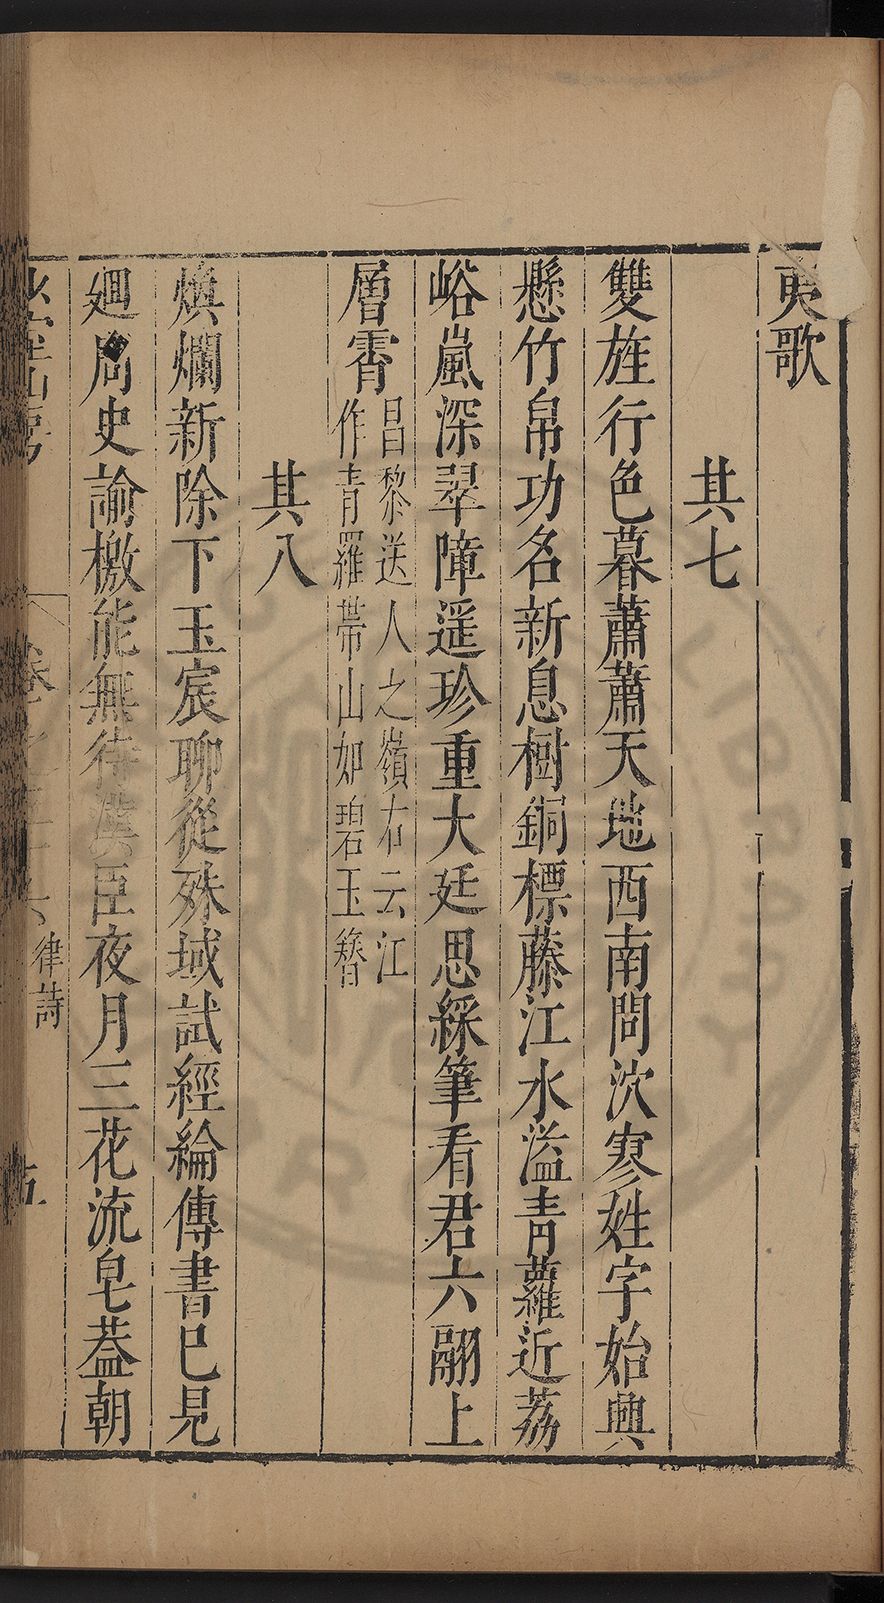 夷歌
其七
雙旌行色暮蕭蕭天地西南問泬寥姓字始興
懸竹帛功名新息樹銅標藤江水溢青蘿近荔
峪嵐深翠障遥珍重大廷思綵筆看君六翮上
層霄
昌黎送人之嶺右云江
作青羅帶山如碧玉簪
其八
煥爛新除下玉宸聊從殊域試經綸傳書已見
廻周史諭檄能無待漢臣夜月三花流皂蓋朝
律詩
五